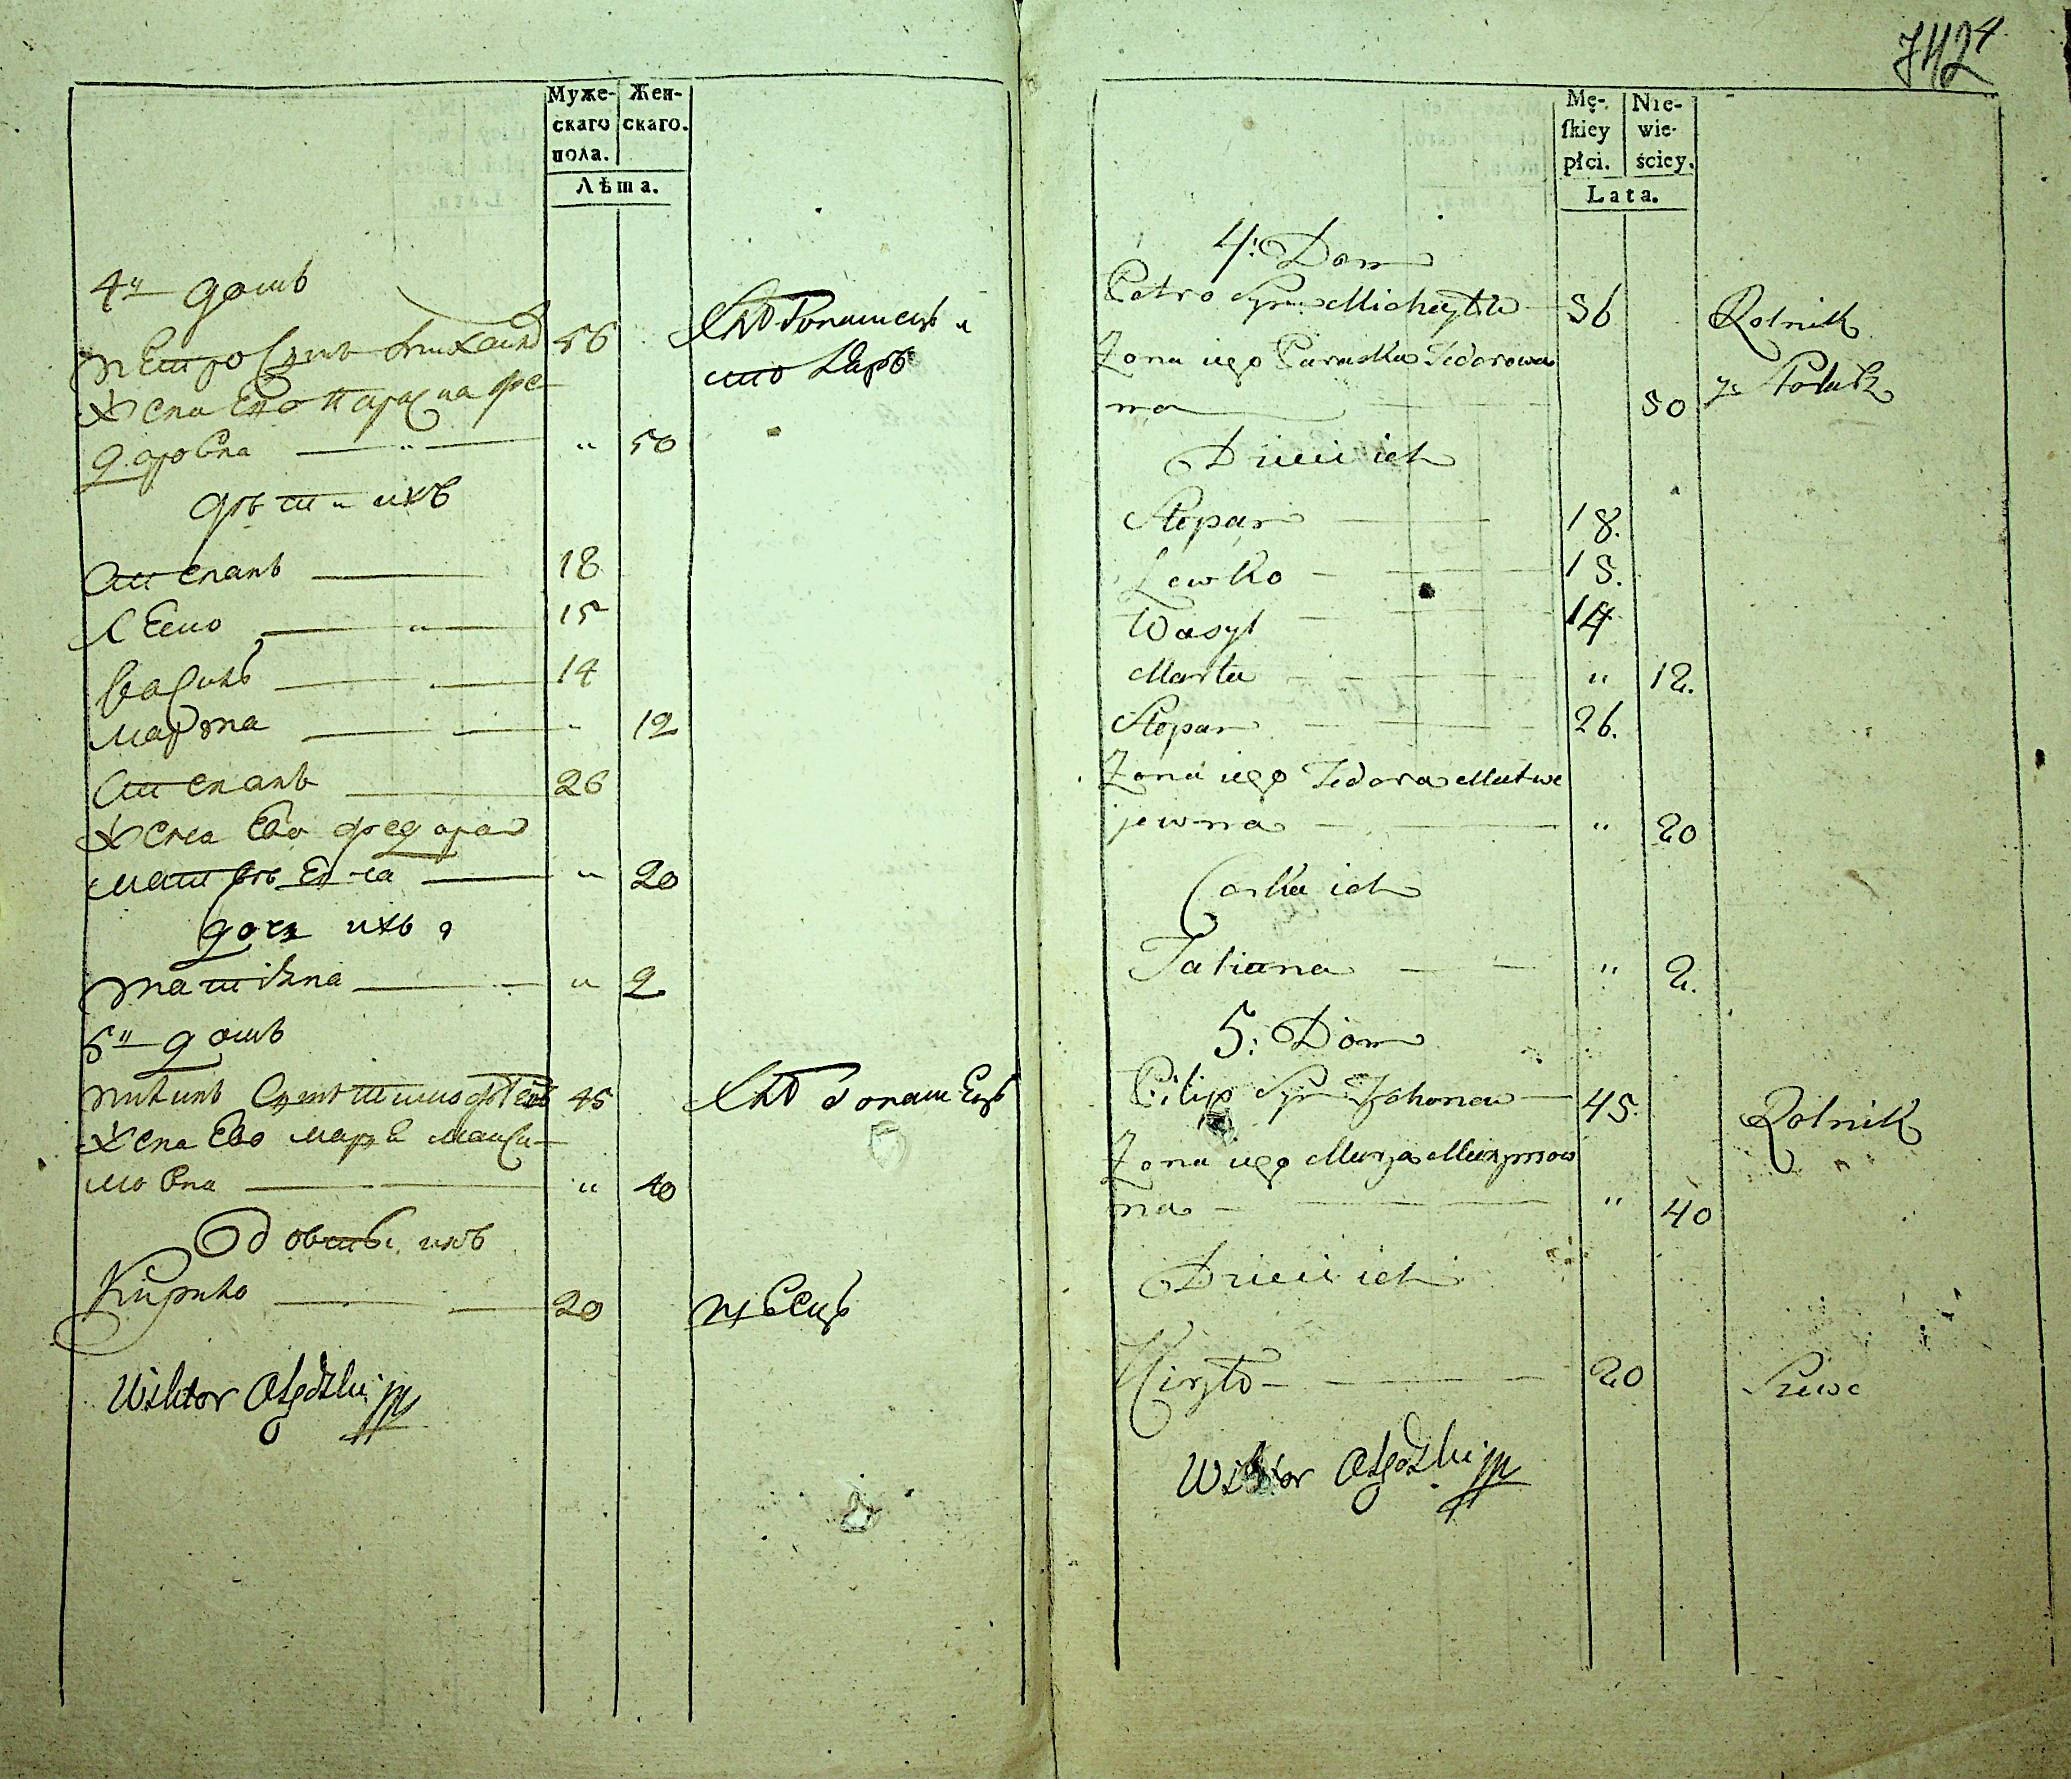 Муже-
скаго
пола.
Жен-
скаго.
Лѣта.
4й домъ
Петро Сынъ Михаила 56 Хлѣбопашецъ и
Жена Ево Параска Фе- столяръ
доровна " 50
дѣти ихъ
Степанъ 18
Левко 15
Василь 14
Марта " 12
Степанъ 26
Жена Ево Федора
Матвѣевна " 20
дочь ихъ
Татіяна " 2
5й домъ
Пилипъ Сынъ 45 Хлѣбопашецъ
Жена Ево Маря Макси-
мовна " 40
ихъ
Кирило 20 швецъ
Wiktor
4
Mę-
ſkiey
płci.
Nie-
wie-
ściey.
Lata.
4: Dom
Petro Syn Michayła 56 Rolnik
Zona iego Paraska Fedorow
na 50 y Stolarz
Dzieci ich
Stepan 18.
Lewko 15.
Wasyl 14
Marta " 12.
Stepan 26.
Zona iego Fedora Matwe
jewna " 20
Corka ich
Tatiana " 2.
5: Dom
Pilip Syn 45. Rolnik
Zona iego Marya Maxymow
na " 40
Dzieci ich
Kiryło 20 Szewc
Wiktor